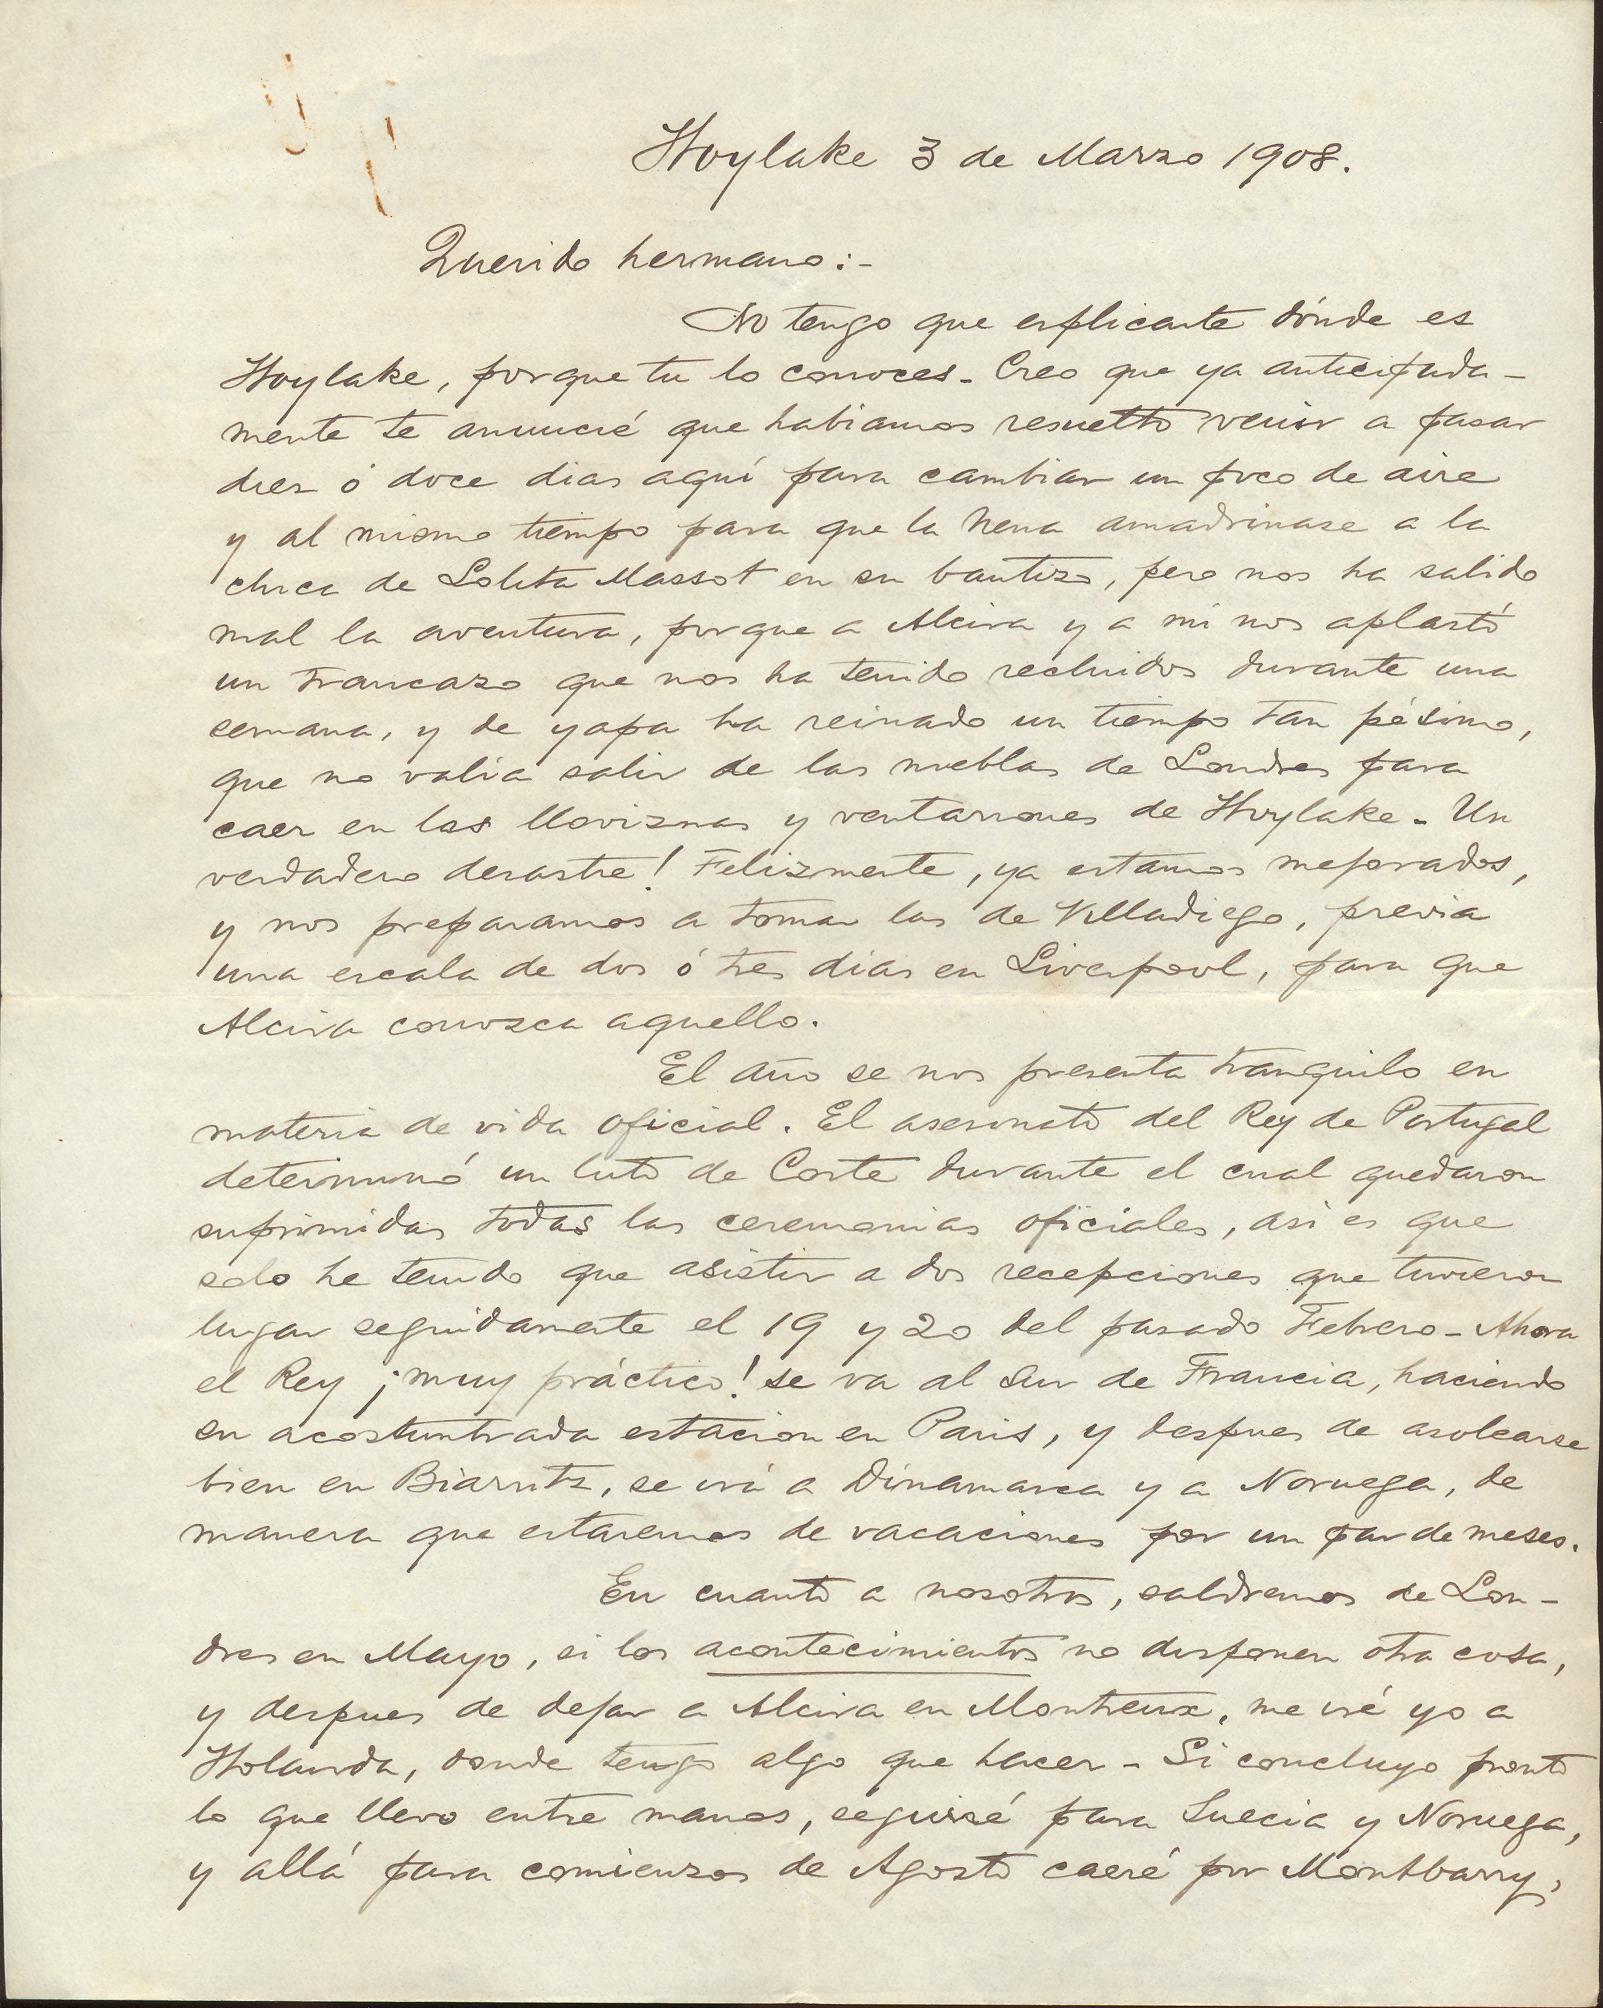 Hoylake 3 de Marzo 1908.
Querido hermano:-
No tengo que esplicarte dónde es
Hoylake, porque tu lo conoces - Creo que ya anticipada-
mente te anuncié que habiamos resuelto venir a pasar
diez ó doce dias aquí para cambiar un poco de aire
y al mismo tiempo para que la Nena amadrinase a la
chica de Lolita Massot en su bautizo, pero nos ha salido
mal la aventura, porque a Alcira y a mí nos aplastó
un trancazo que nos ha tenido recluidos durante una
semana, y de yapa ha reinado un tiempo tan pésimo,
que no valia salir de las nieblas de Londres para
caer en las lloviznas y ventarrones de Hoylake - Un
verdadero desastre! Felizmente, ya estamos mejorados,
y nos preparamos a tomar las de Villadiego, previa
una escala de dos ó tres dias en Liverpool, para que
Alcira conozca aquello.
El año se nos presenta tranquilo en
materia de vida oficial. El asesinato del Rey de Portugal
determinó un luto de Corte durante el cual quedaron
suprimidas todas las ceremonias oficiales, asi es que
solo he tenido que asistir a dos recepciones que tuvieron
lugar seguidamente el 19 y 20 del pasado Febrero - Ahora
el Rey ¡muy práctico! se va al Sur de Francia, haciendo
su acostumbrada estacion en Paris, y despues de asolearse
bien en Biarritz, se irá a Dinamarca y a Noruega, de
manera que estaremos de vacaciones por un par de meses.
En cuanto a nosotros, saldremos de Lon-
dres en Mayo, si los acontecimientos no disponen otra cosa,
y despues de dejar a Alcira en Montreux, me iré yo a
Holanda, donde tengo algo que hacer - Si concluyo pronto
lo que llevo entre manos, seguiré para Suecia y Noruega,
y allá para comienzos de Agosto caeré por Montbarry,